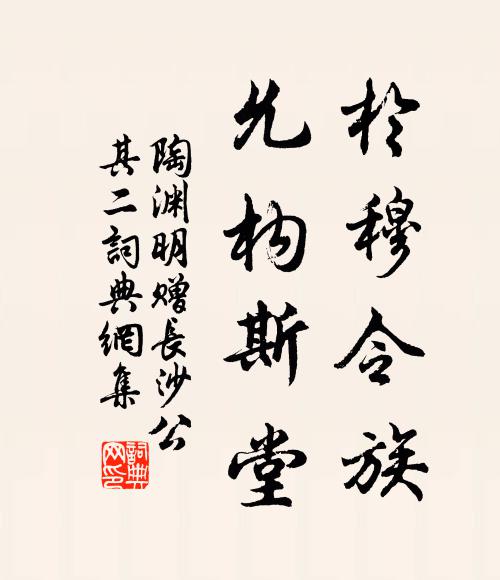 於穆令族
允构斯堂
陶渊明赠長沙公
其二詞典網集
詞典
网印